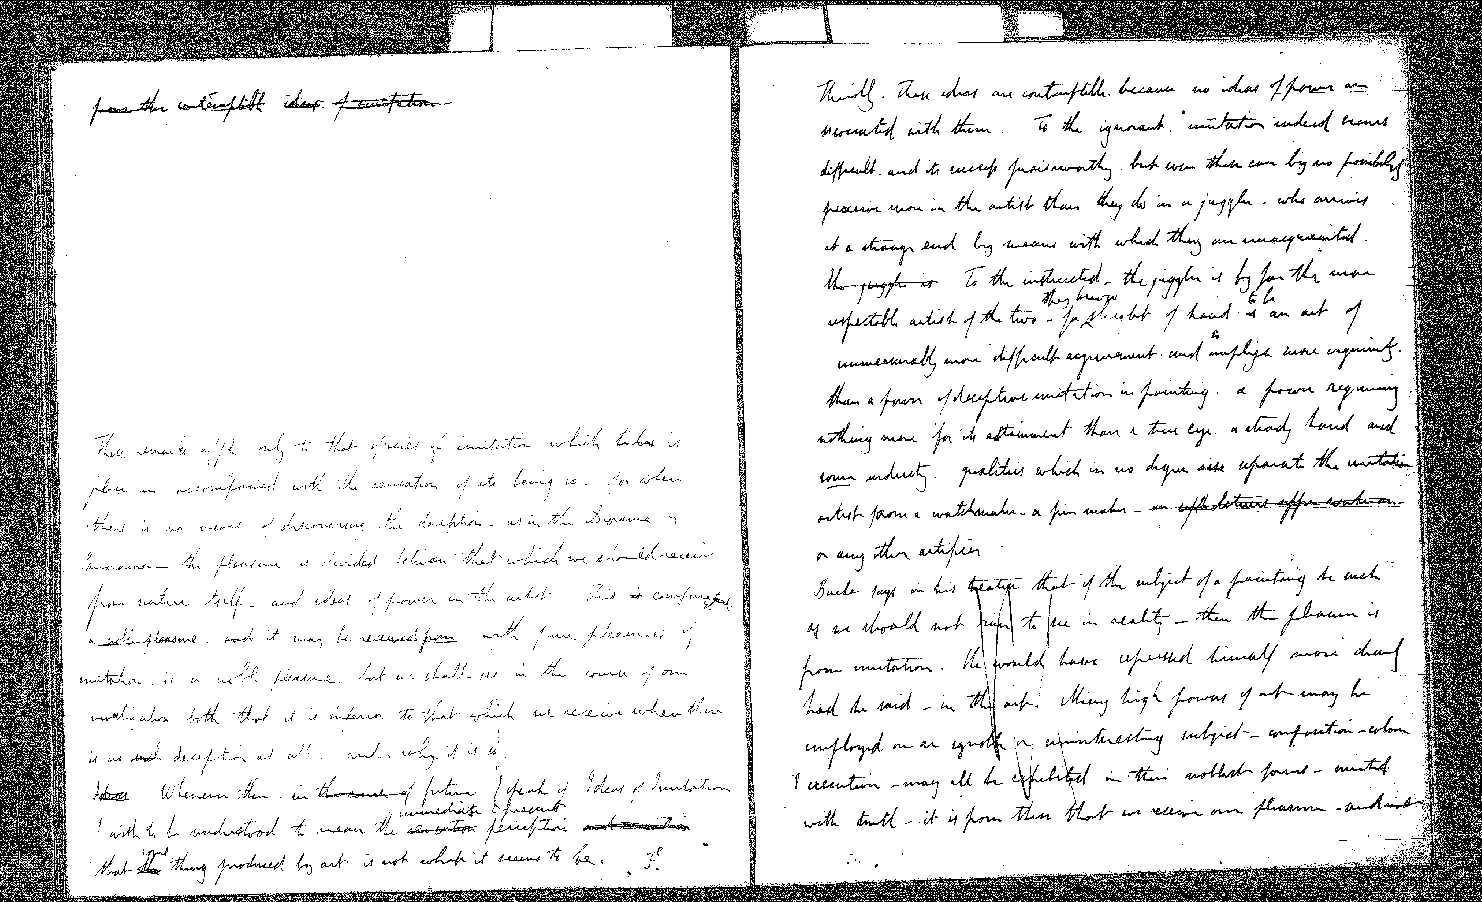 from the contemptible ideas of imitation
These remarks apply only to that species of imitation which has its
place accompanied with the sensation of its being so. For when
there is no means of discovering the deception - as in the Diorama or
Panorama - the pleasure is divided between that which we should receive
from nature itself - and ideas of power in the artist. This is
a noble pleasure. and it may be received from with pure pleasures of
imitation. is a noble pleasure. but we shall see in the course of our
investigation both that it is inferior to that which we receive when there
is no such deception at all. and why it is so.
Ideas Whenever then. in the course of future I speak of Ideas of Imitation
immediate & present
I wish to be understood to mean the sensation perception and sensation
that the thing produced by art is not what it seems to be.
Thirdly. These ideas are contemptible because no ideas of power are
associated with them. To the ignorant, imitation indeed seems
difficult. and its success praiseworthy. but even these can by no possibility
perceive more in the artist than they do in a juggler. who arrives
at a strange end by means with which they are unacquainted.
the juggler is To the instructed - the juggler is by far the more
they know to be
respectable artist of the two - for sleight of hand is an art of
to
immeasurably more difficult acquirement. and implies more ingenuity.
than a power of deceptive imitation in painting. a power requiring
nothing more for its attainment than a true eye. a steady hand and
some industry. qualities which in no degree separate the imitation
artist from a watchmaker - a pin maker - an
or any other artificer
Burke says in his treatise that if the subject of a painting be such
as we should not run to see in reality - then the pleasure is
from imitation. He would have expressed himself more clearly
had he said - in the art. Many high powers of art may be
employed on an ignoble or uninteresting subject - composition - colour
execution - may all be exhibited in their noblest forms - united
with truth - it is from these that we receive our pleasure - and